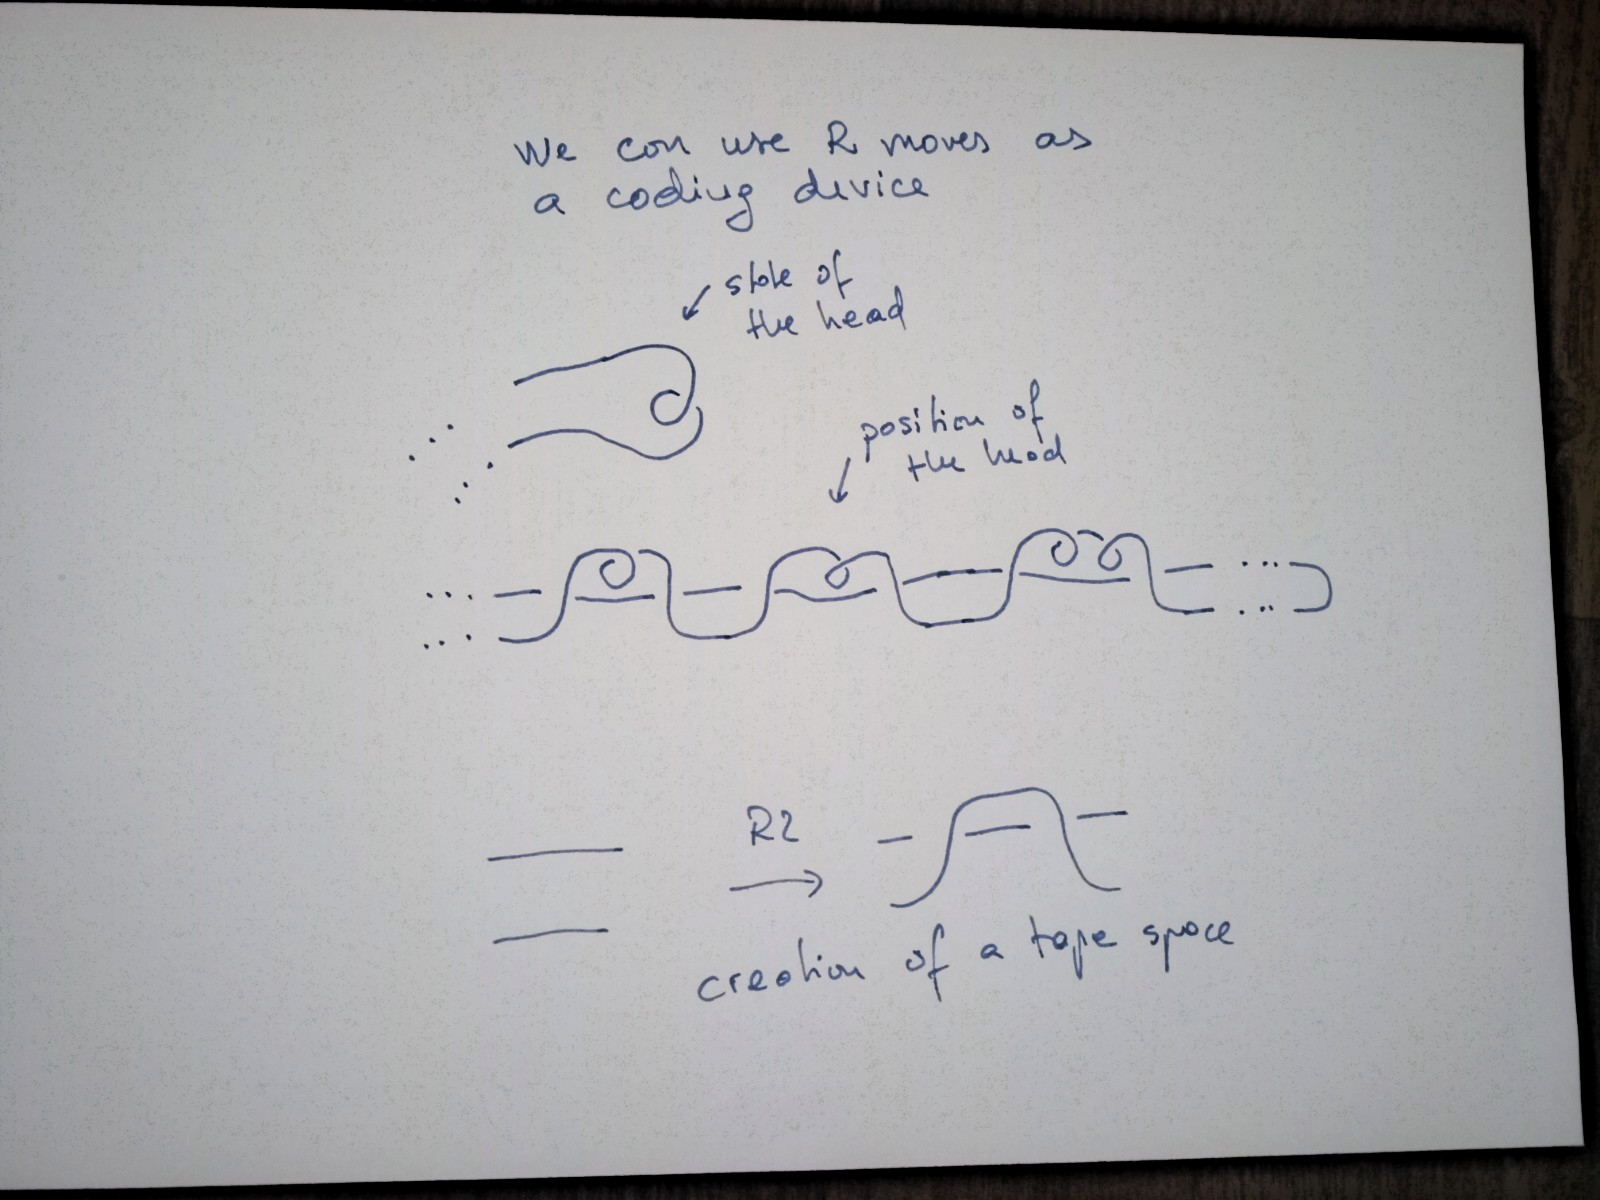 We can use R moves as
a coding device
state of
the head
position of
the head
R2
creation of a tape space